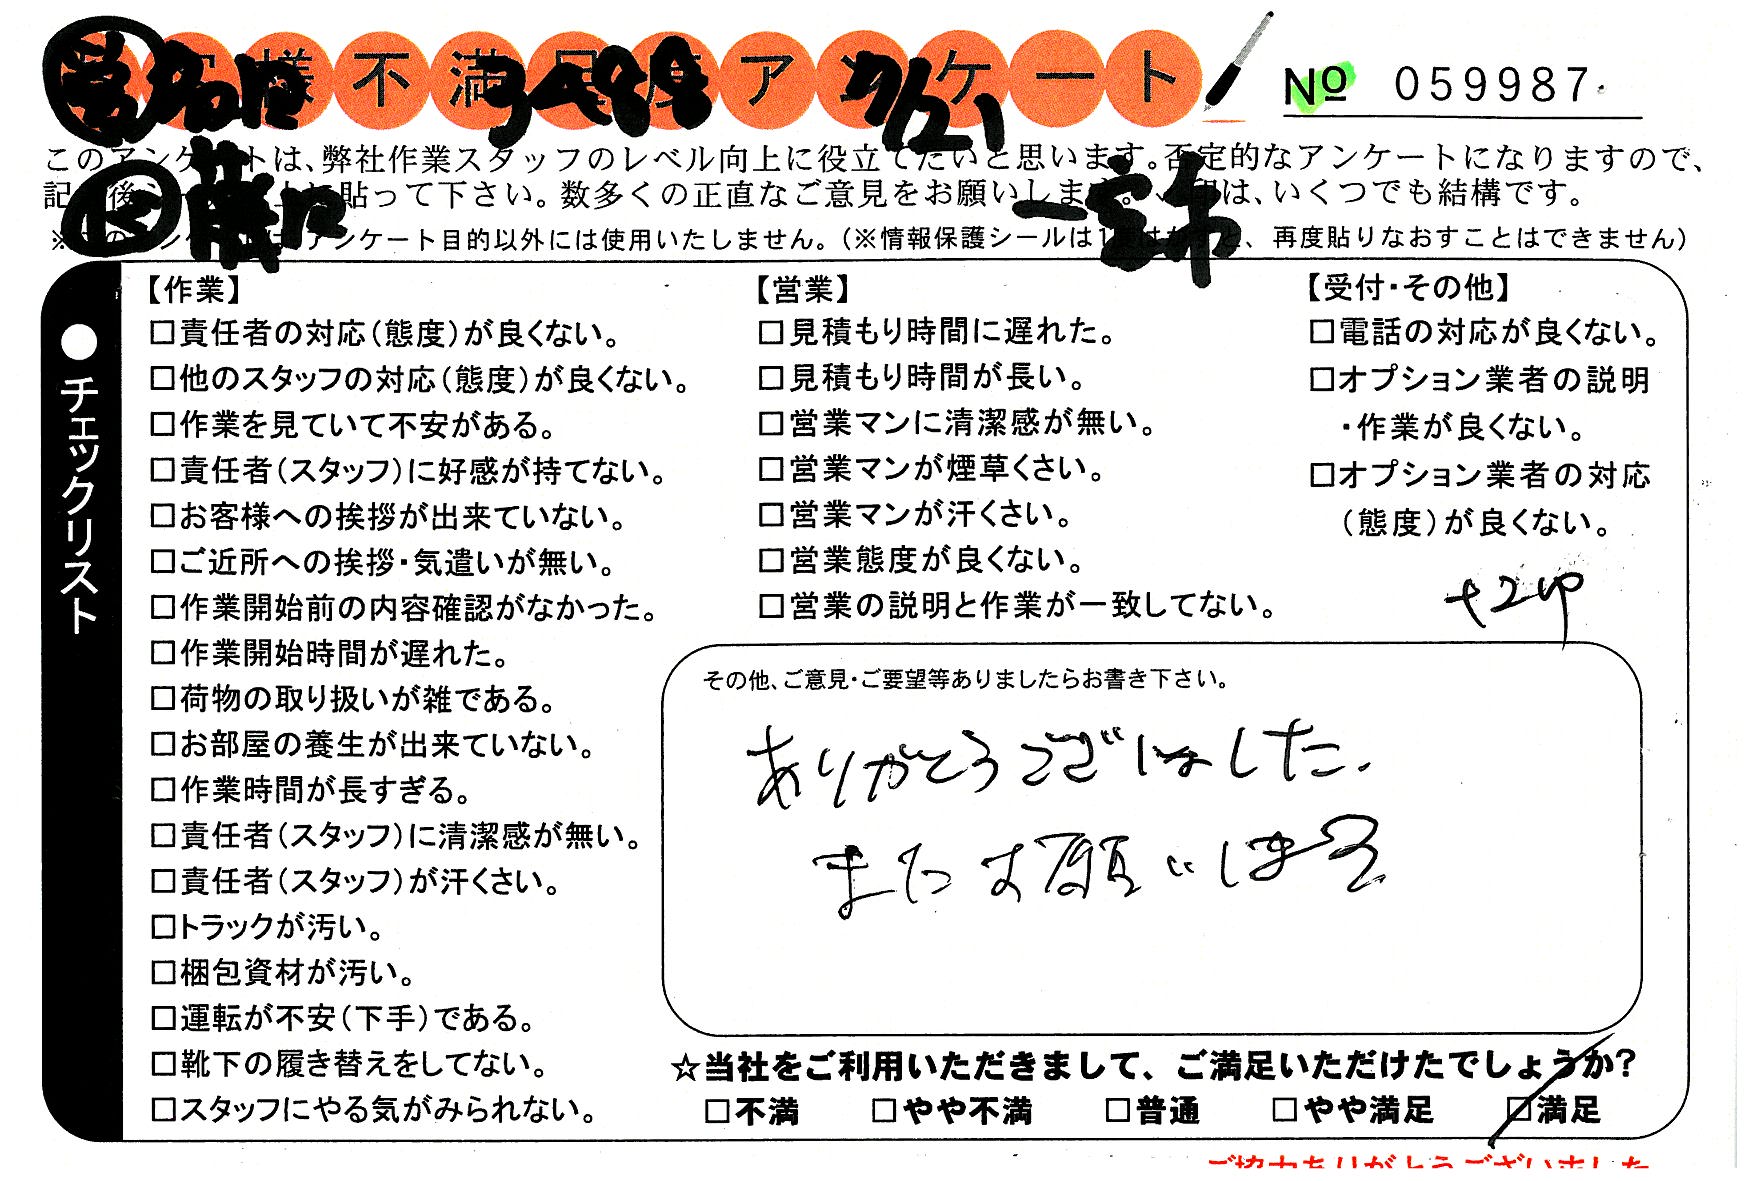 お客様不満足度アンケート
No 059987
このアンケートは、弊社作業スタッフのレベル向上に役立てたいと思います。否定的なアンケートになりますので、
記 後 貼って下さい。数多くの正直なご意見をお願いします。 は、いくつでも結構です。
アンケート目的以外には使用いたしません。(※情報保護シールは1 再度貼りなおすことはできません)
●チェックリスト
【作業】
□責任者の対応(態度)が良くない。
□他のスタッフの対応(態度)が良くない。
□作業を見ていて不安がある。
□責任者(スタッフ)に好感が持てない。
□お客様への挨拶が出来ていない。
□ご近所への挨拶・気遣いが無い。
□作業開始前の内容確認がなかった。
□作業開始時間が遅れた。
□荷物の取り扱いが雑である。
□お部屋の養生が出来ていない。
□作業時間が長すぎる。
□責任者(スタッフ)に清潔感が無い。
□責任者(スタッフ)が汗くさい。
□トラックが汚い。
□梱包資材が汚い。
□運転が不安(下手)である。
□靴下の履き替えをしてない。
□スタッフにやる気がみられない。
【営業】
□見積もり時間に遅れた。
□見積もり時間が長い。
□営業マンに清潔感が無い。
□営業マンが煙草くさい。
□営業マンが汗くさい。
□営業態度が良くない。
□営業の説明と作業が一致してない。
【受付・その他】
□電話の対応が良くない。
□オプション業者の説明
・作業が良くない。
□オプション業者の対応
(態度)が良くない。
その他、ご意見・ご要望等ありましたらお書き下さい。
ありがとうございました。
またお願いします
☆当社をご利用いただきまして、ご満足いただけたでしょうか?
□不満 □やや不満 □普通 □やや満足 □満足
ご協力ありがとうございました